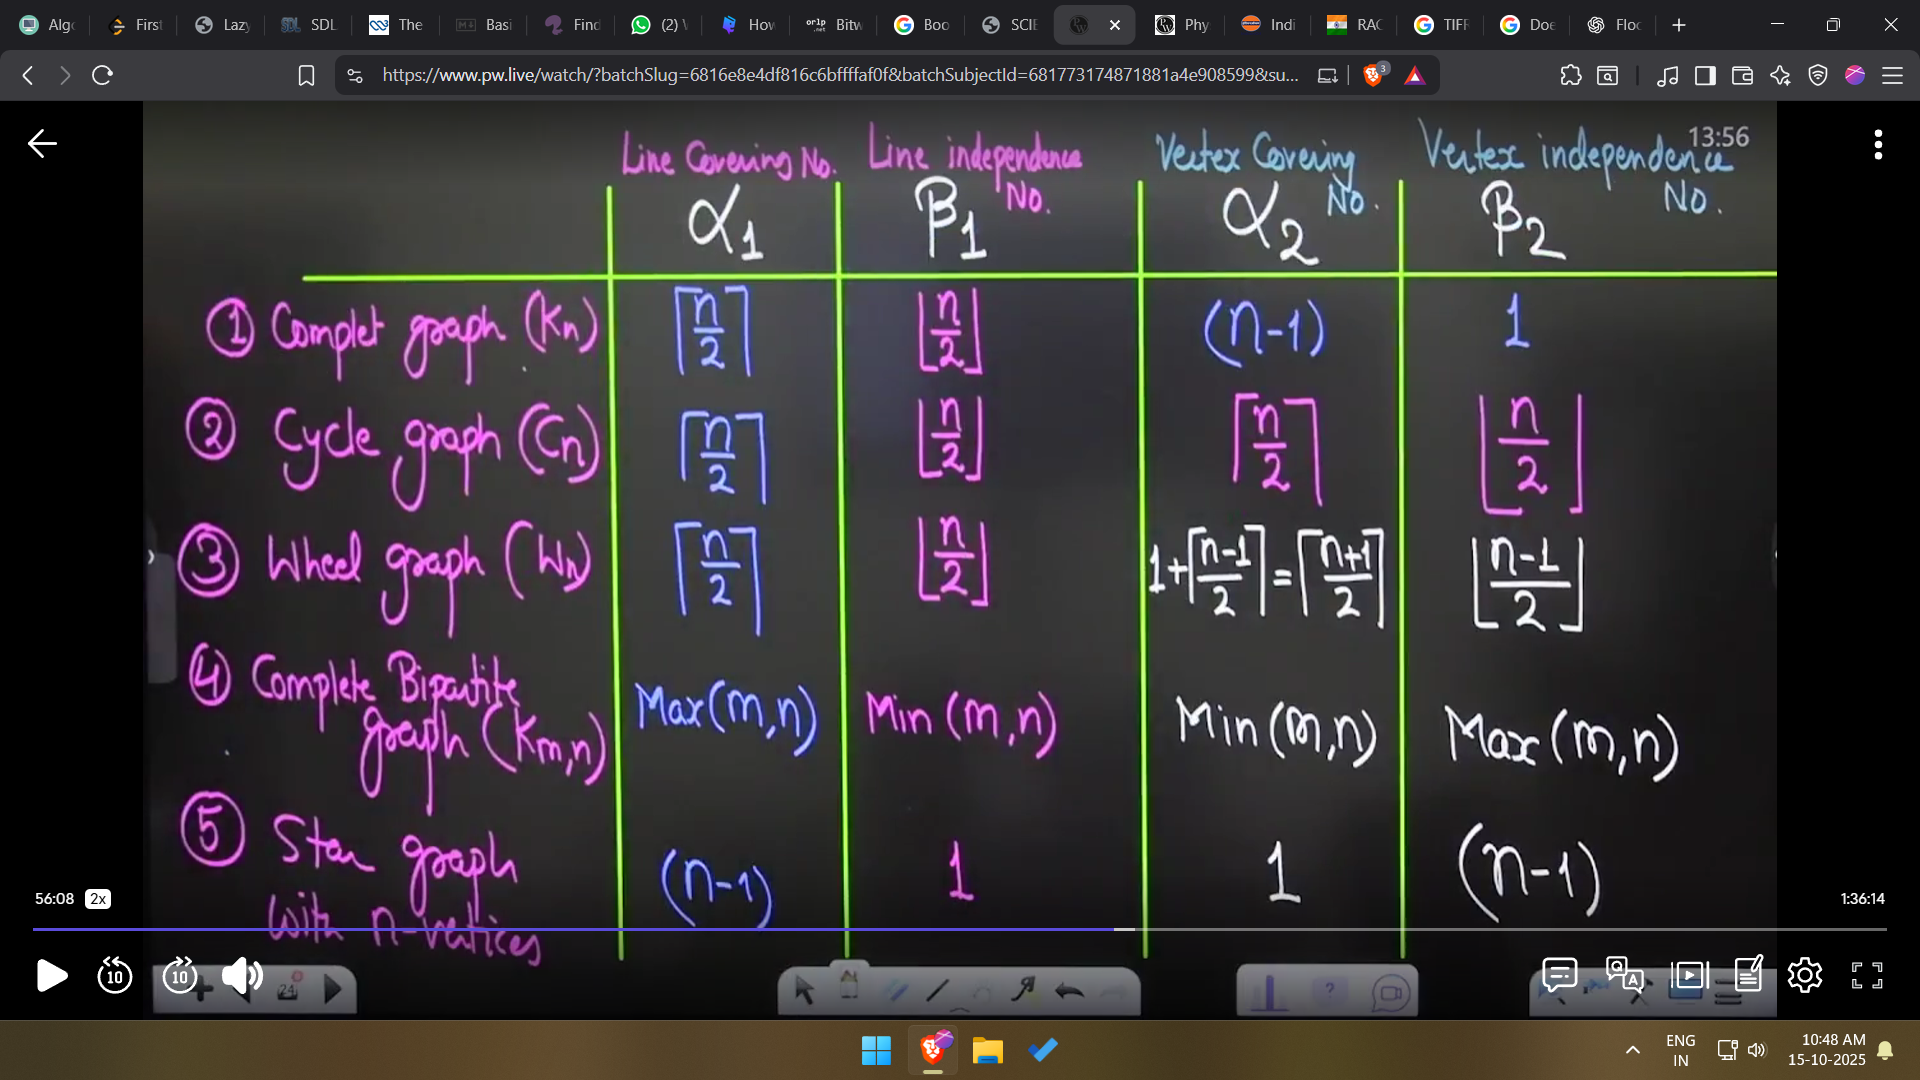 Algo
First
Lazy
SDL
The
Basi
Find
(2) W
How
Bitw
Boo
SCIE
Phy
Indi
RAC
TIFR
Doe
Floc
https://www.pw.live/watch/?batchSlug=6816e8e4df816c6bffffaf0f&batchSubjectId=681773174871881a4e908599&su...
3
13:56
Line Covering No. Line independence No. Vertex Covering No. Vertex independence No.
α1 β1 α2 β2
① Complet graph (Kn) ⌈n/2⌉ ⌊n/2⌋ (n-1) 1
② Cycle graph (Cn) ⌈n/2⌉ ⌊n/2⌋ ⌈n/2⌉ ⌊n/2⌋
③ Wheel graph (Wn) ⌈n/2⌉ ⌊n/2⌋ 1+⌈n-1/2⌉=⌈n+1/2⌉ ⌊n-1/2⌋
④ Complete Bipartite
graph (Km,n) Max(m,n) Min(m,n) Min(m,n) Max(m,n)
⑤ Star graph (n-1) 1 1 (n-1)
with n-vertices
56:08 2x 1:36:14
10 10
24
ENG
IN
10:48 AM
15-10-2025